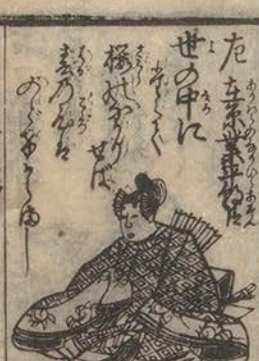 左 在原業平朝臣
世の中に
たえて
桜のなかりせば
春の心は
のどけからまし